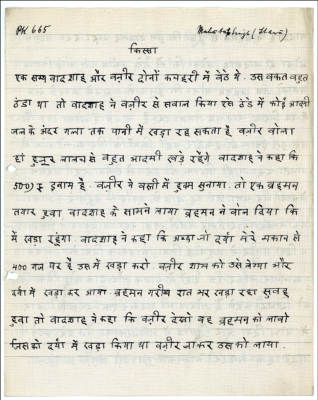 PK 665
किस्सा
एक समय बादशाह और वज़ीर दोनों कचहरी में बैठे थे. उस वकत बहुत
ठंडा था तो बादशाह ने वज़ीर से सवाल किया इस ठंड में कोई आदमी
जल के अंदर गला तक पानी में खड़ा रह सकता है वज़ीर बोला
हां हुज़ूर लालच से बहुत आदमी खड़े रहेंगे बादशाह ने कहा कि
500) रु इनाम है. वज़ीर ने बस्ती में हुक्म सुनाया. तो एक ब्रहमन
तयार हुवा बादशाह के सामने लाया ब्रहमन ने बोल दिया कि
में खड़ा रहूंगा बादशाह ने कहा कि अच्छा जो दर्या मेरे मकान से
400 गज पर है उस में खड़ा करो वज़ीर शाम को उसे लेगया और
दर्या में खड़ा कर आया. ब्रहमन गरीब रात भर खड़ा रहा सुबह
हुवा तो बादशाह ने कहा कि वज़ीर देखो वह ब्रहमन को लावो
जिसको दर्या में खड़ा किया था वज़ीर जाकर उसको लाया.